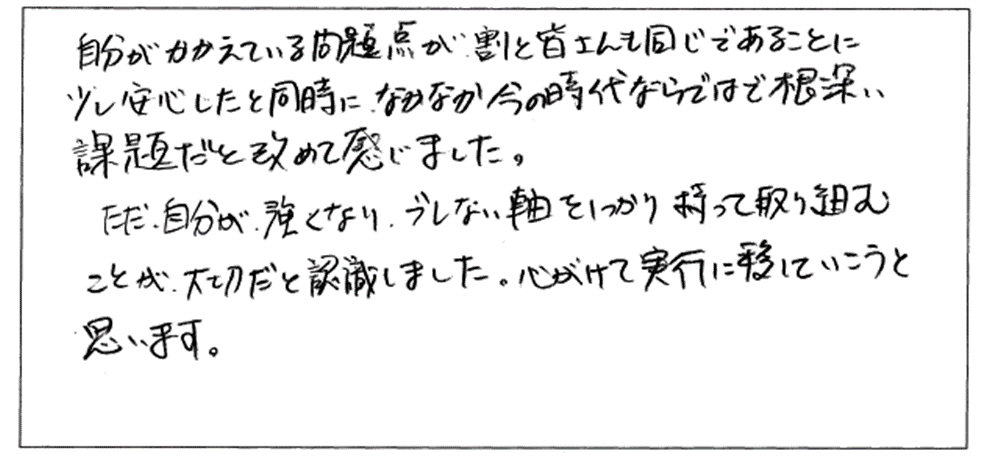 自分がかかえている問題点が、割と皆さんも同じであることに
少し安心したと同時に、なかなか今の時代ならではで根深い
課題だと改めて感じました。
ただ、自分が、強くなり、ブレない軸をしっかり持って取り組む
ことが、大切だと認識しました。心がけて実行に移していこうと
思います。